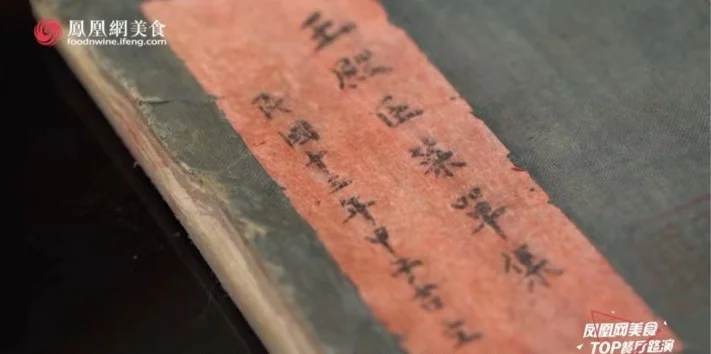 鳳凰網美食
foodnwine.ifeng.com
王殿臣菜單集
民國十三年甲子吉立
凤凰网美食
TOP餐厅路演